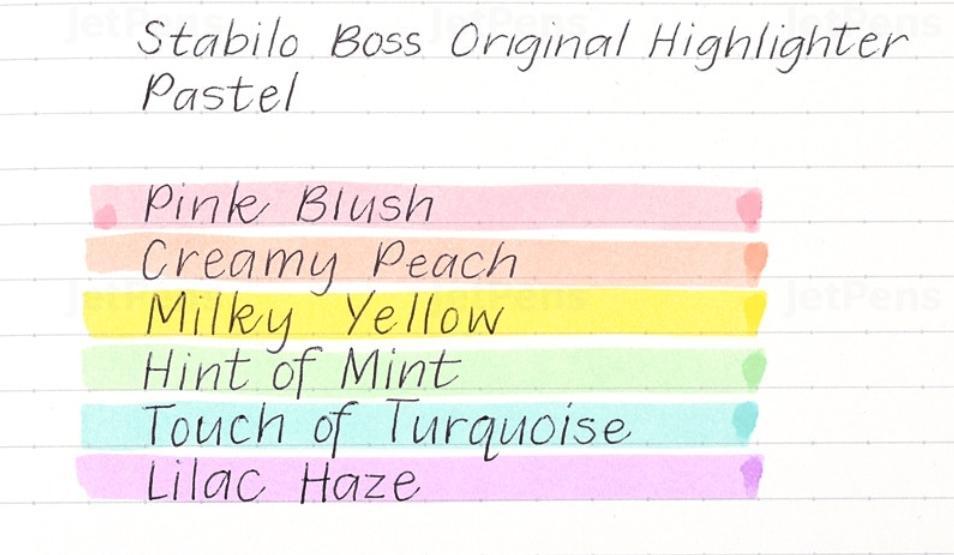 JetPens JetPens JetPens
Stabilo Boss Original Highlighter
Pastel
Pink Blush
Creamy Peach
JetPens JetPens JetPens
Milky Yellow
Hint of Mint
Touch of Turquoise
Lilac Haze